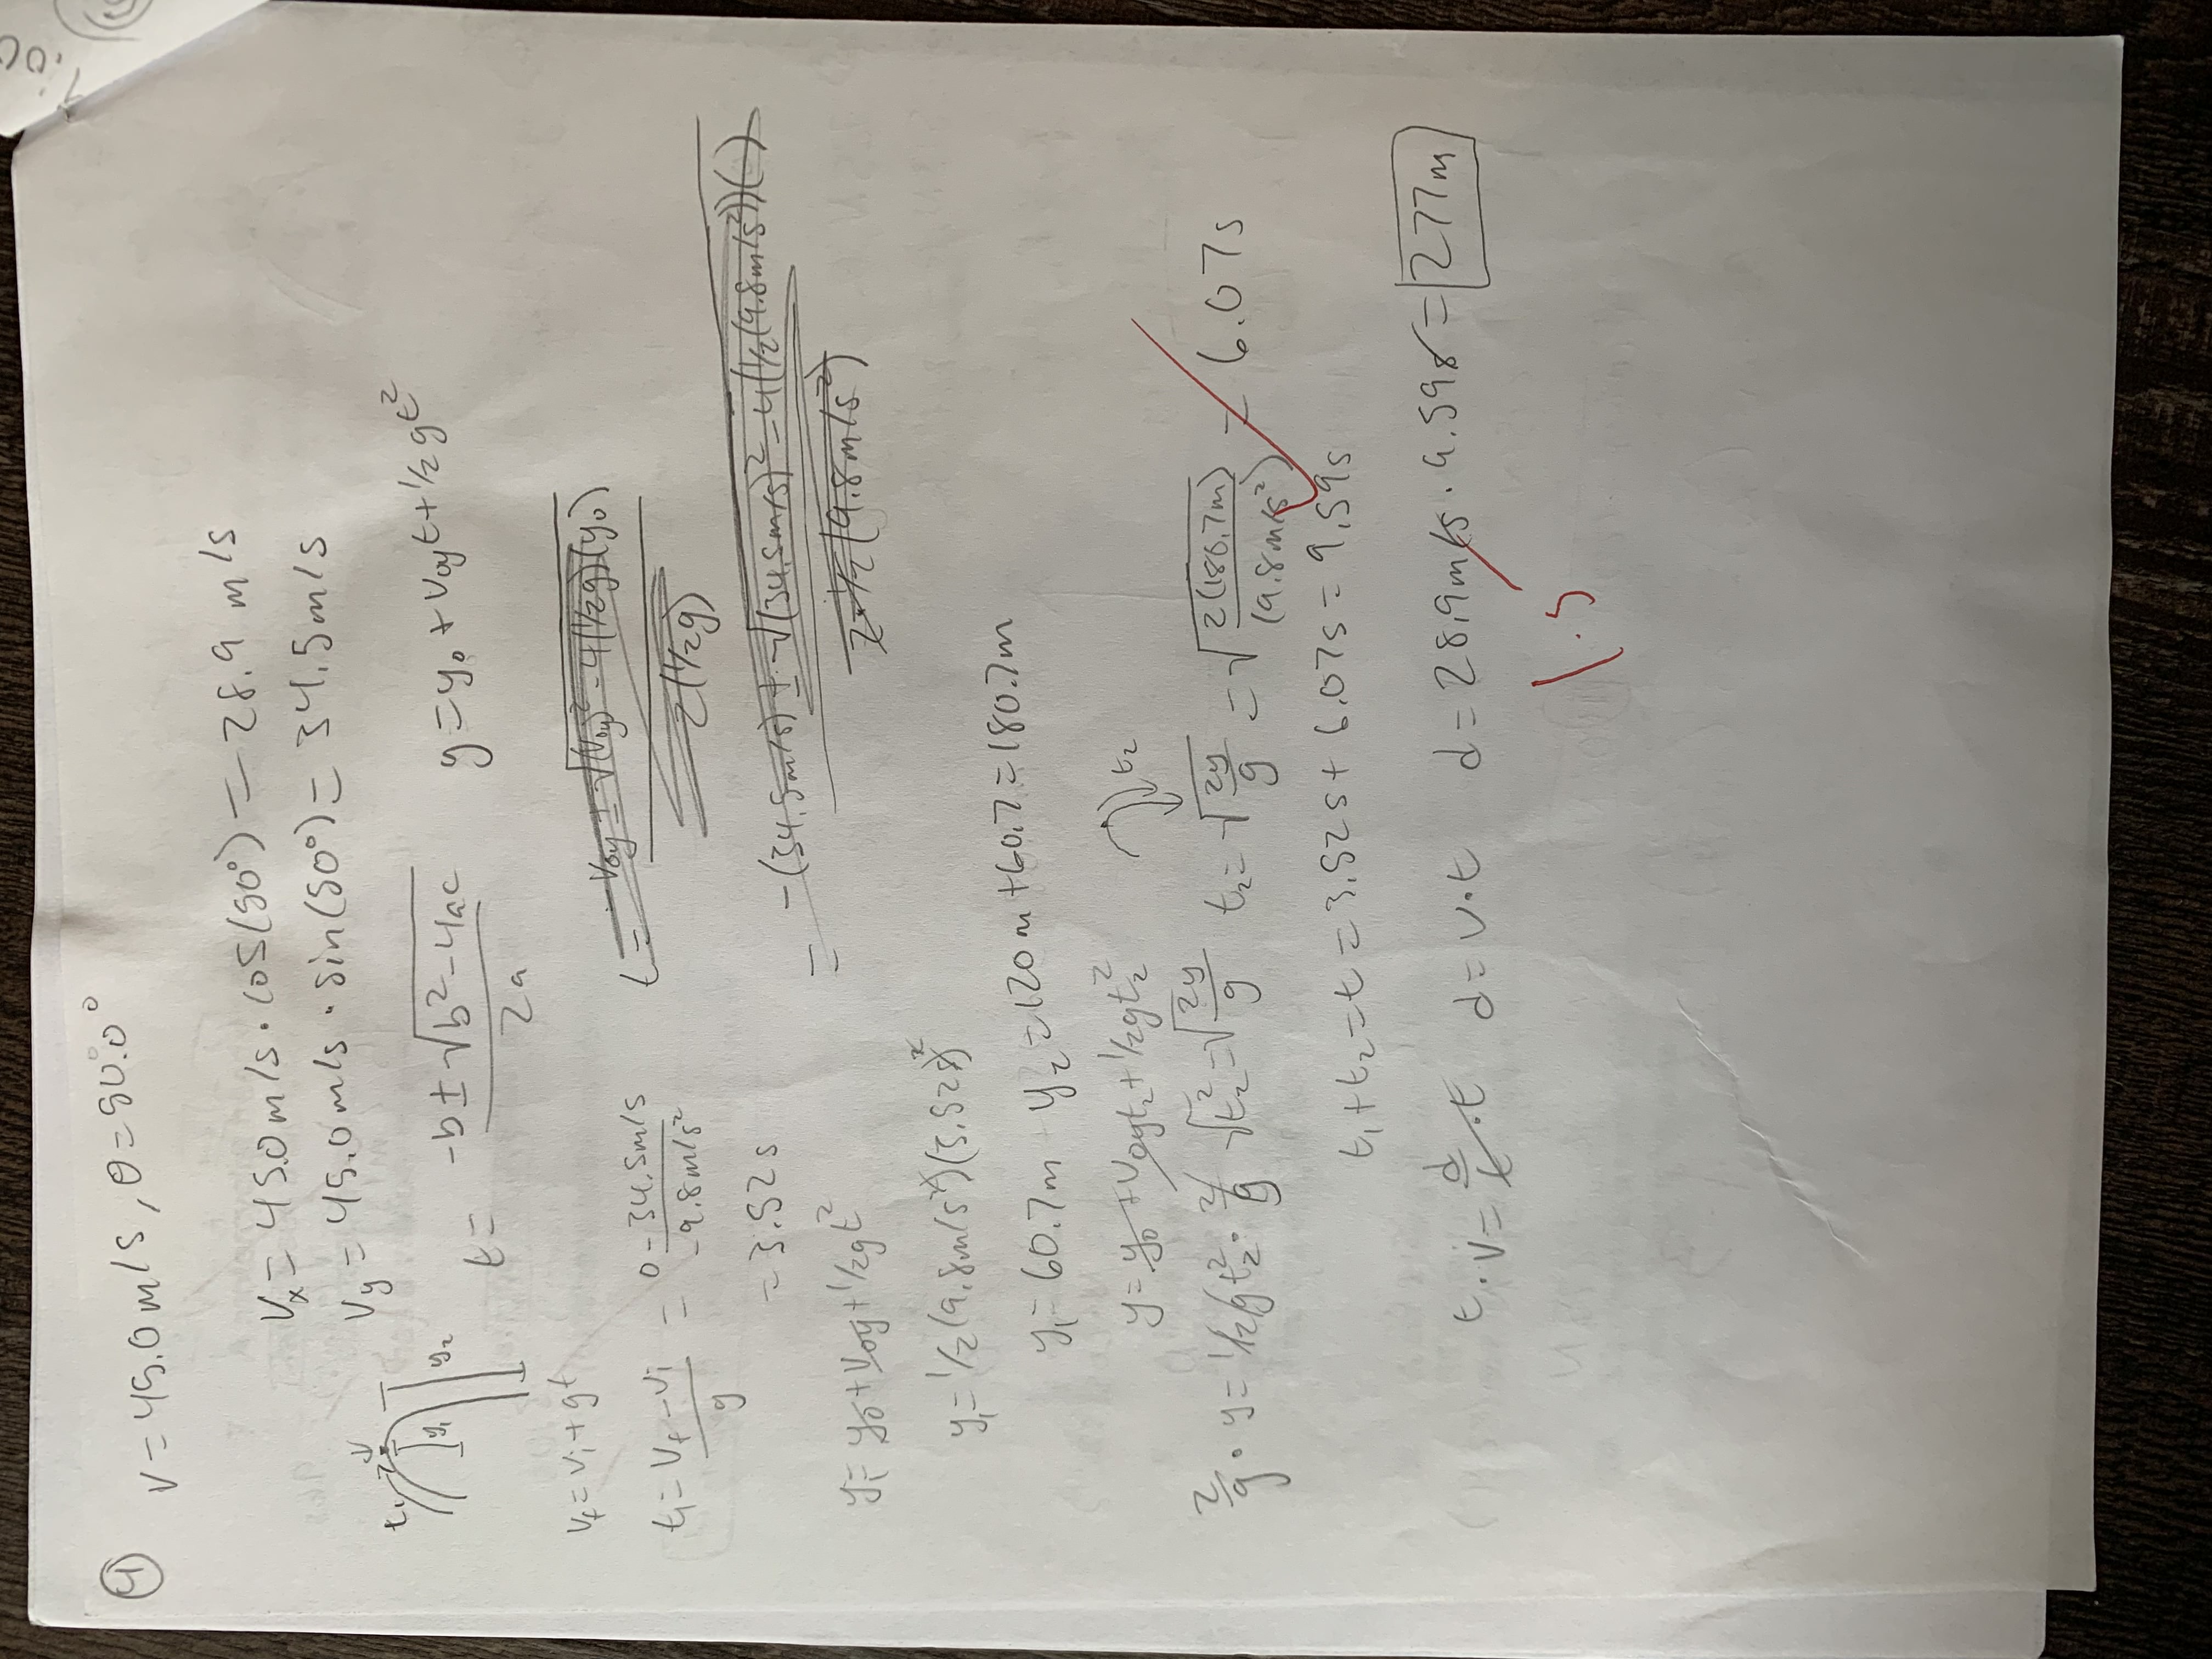 ④
V = 45.0 m/s, θ = 50.0°
Vx = 45.0 m/s · cos(50°) = 28.9 m/s
Vy = 45.0 m/s · sin(50°) = 34.5 m/s
t₁ V y₁ y₂
t = (-b ± √(b² - 4ac)) / 2a
y = y₀ + V₀yt + 1/2 gt²
Vf = Vi + gt
t = (-V₀y ± √((V₀y)² - 4(1/2g)(y₀))) / 2(1/2g)
t₁ = (Vf - Vi) / g = (0 - 34.5m/s) / (-9.8m/s²)
= 3.52s
= (-(34.5m/s) ± √((34.5m/s)² - 4(1/2(9.8m/s²))( ))) / 2·1/2(9.8m/s²)
y₁ = y₀ + V₀y + 1/2gt²
y₁ = 1/2(9.8m/s²)(3.52s)²
y₁ = 60.7m y₂ = 120m + 60.7 = 180.7m
y = y₀ + V₀yt₂ + 1/2gt₂²
t₂
2/g · y = 1/2gt₂² · 2/g √t₂² = √(2y/g) t₂ = √(2y/g) = √(2(180.7m)/(9.8m/s²)) = 6.07s
t₁ + t₂ = t = 3.52s + 6.07s = 9.59s
t · V = d/t · t d = V · t d = 28.9m/s · 9.59s = 277m
1.5